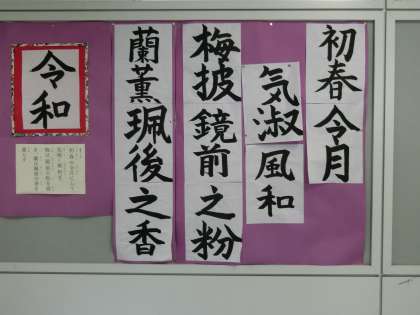 初春令月
気淑風和
梅披鏡前之粉
蘭薫珮後之香
令和